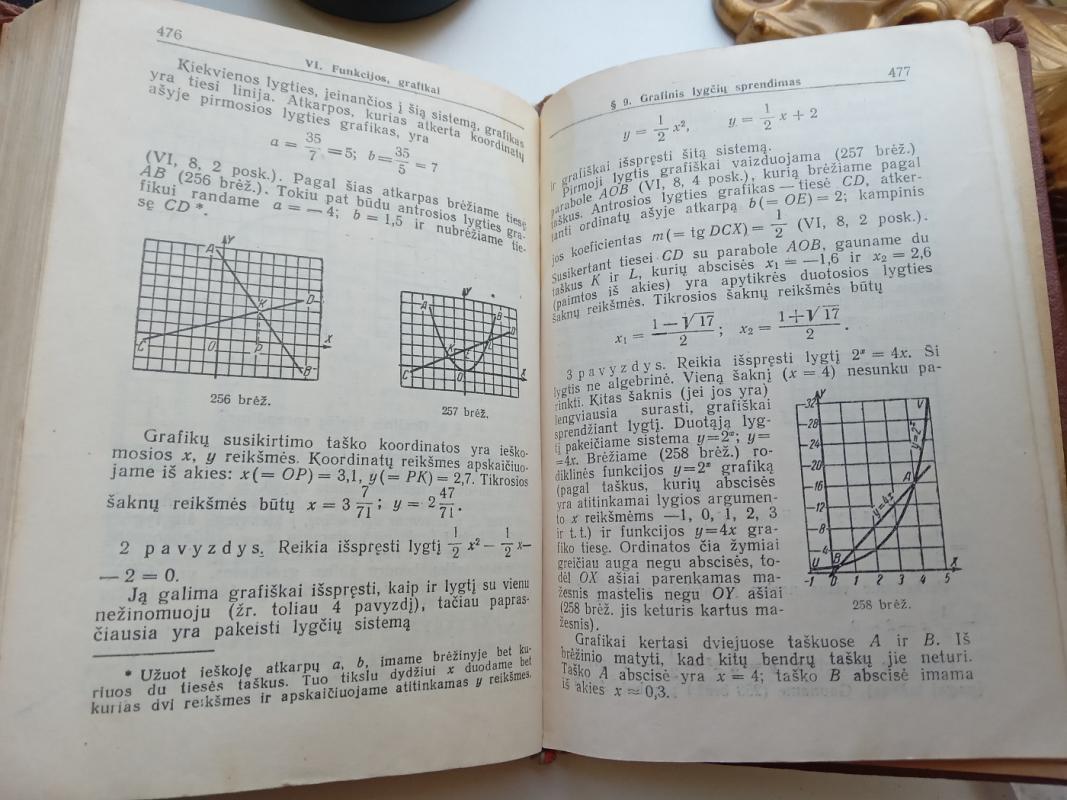 476
VI. Funkcijos, grafikai
Kiekvienos lygties, įeinančios į šią sistemą, grafikas
yra tiesi linija. Atkarpos, kurias atkerta koordinatų
ašyje pirmosios lygties grafikas, yra
a = 35/7 = 5; b = 35/5 = 7
(VI, 8, 2 posk.). Pagal šias atkarpas brėžiame tiesę
AB (256 brėž.). Tokiu pat būdu antrosios lygties gra-
fikui randame a = — 4; b = 1,5 ir nubrėžiame tie-
sę CD *.
A Y K D C O P X B
256 brėž.
A Y B D K E L C O X
257 brėž.
Grafikų susikirtimo taško koordinatos yra ieško-
mosios x, y reikšmės. Koordinatų reikšmes apskaičiuo-
jame iš akies: x(= OP) = 3,1, y(= PK) = 2,7. Tikrosios
šaknų reikšmės būtų x = 3 7/71; y = 2 47/71.
2 pavyzdys. Reikia išspręsti lygtį 1/2 x² — 1/2 x—
— 2 = 0.
Ją galima grafiškai išspręsti, kaip ir lygtį su vienu
nežinomuoju (žr. toliau 4 pavyzdį), tačiau papras-
čiausia yra pakeisti lygčių sistemą
* Užuot ieškoję atkarpų a, b, imame brėžinyje bet ku-
riuos du tiesės taškus. Tuo tikslu dydžiui x duodame bet
kurias dvi reikšmes ir apskaičiuojame atitinkamas y reikšmes.
§ 9. Grafinis lygčių sprendimas
477
y = 1/2 x², y = 1/2 x + 2
ir grafiškai išspręsti šitą sistemą.
Pirmoji lygtis grafiškai vaizduojama (257 brėž.)
parabole AOB (VI, 8, 4 posk.), kurią brėžiame pagal
taškus. Antrosios lygties grafikas — tiesė CD, atker-
tanti ordinatų ašyje atkarpą b(= OE) = 2; kampinis
jos koeficientas m(= tg DCX) = 1/2 (VI, 8, 2 posk.).
Susikertant tiesei CD su parabole AOB, gauname du
taškus K ir L, kurių abscisės x₁ = —1,6 ir x₂ = 2,6
(paimtos iš akies) yra apytikrės duotosios lygties
šaknų reikšmės. Tikrosios šaknų reikšmės būtų
x₁ = (1 — √17)/2; x₂ = (1+√17)/2.
3 pavyzdys. Reikia išspręsti lygtį 2ˣ = 4x. Ši
lygtis ne algebrinė. Vieną šaknį (x = 4) nesunku pa-
rinkti. Kitas šaknis (jei jos yra)
lengviausia surasti, grafiškai
sprendžiant lygtį. Duotąją lyg-
tį pakeičiame sistema y=2ˣ; y=
=4x. Brėžiame (258 brėž.) ro-
diklinės funkcijos y=2ˣ grafiką
(pagal taškus, kurių abscisės
yra atitinkamai lygios argumen-
to x reikšmėms —1, 0, 1, 2, 3
ir t.t.) ir funkcijos y=4x gra-
fiko tiesę. Ordinatos čia žymiai
greičiau auga negu abscisės, to-
dėl OX ašiai parenkamas ma-
žesnis mastelis negu OY ašiai
(258 brėž. jis keturis kartus ma-
žesnis).
Y
32
V
28
24
y=2ˣ
20
A
16
12
y=4x
8
4
U B X
-1 0 1 2 3 4 5
258 brėž.
Grafikai kertasi dviejuose taškuose A ir B. Iš
brėžinio matyti, kad kitų bendrų taškų jie neturi.
Taško A abscisė yra x = 4; taško B abscisė imama
iš akies x ≈ 0,3.